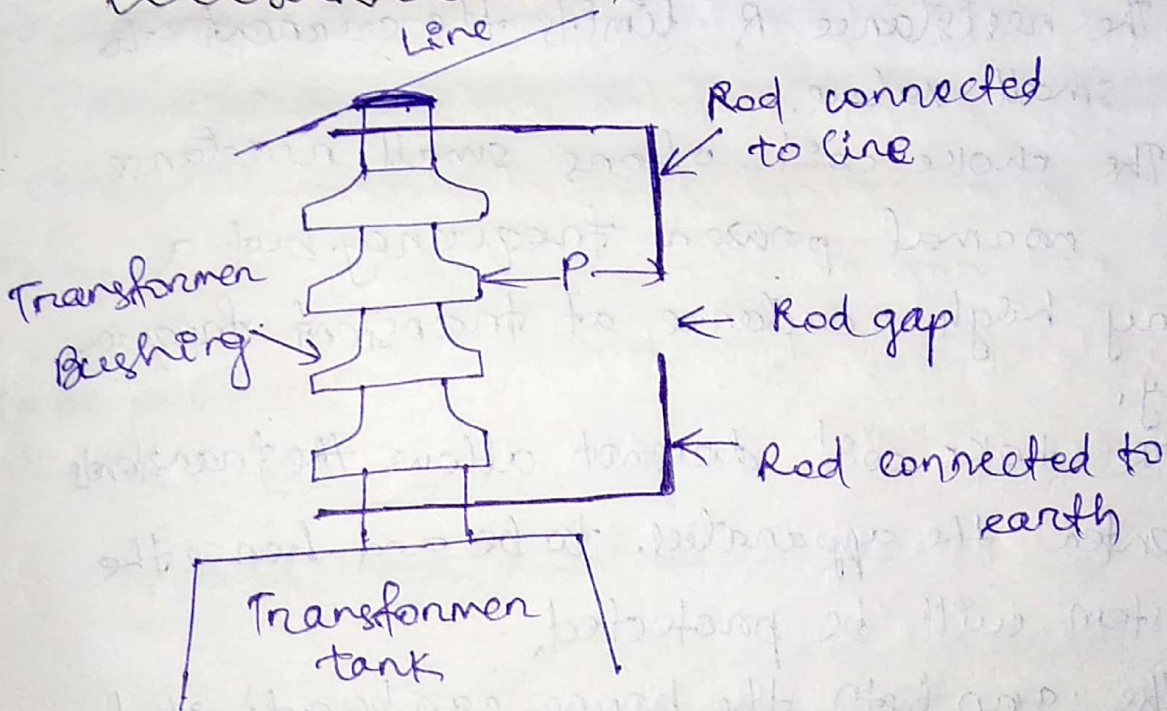 Line
Rod connected
to line
P
Transformer
Bushing
Rod gap
Rod connected to
earth
Transformer
tank